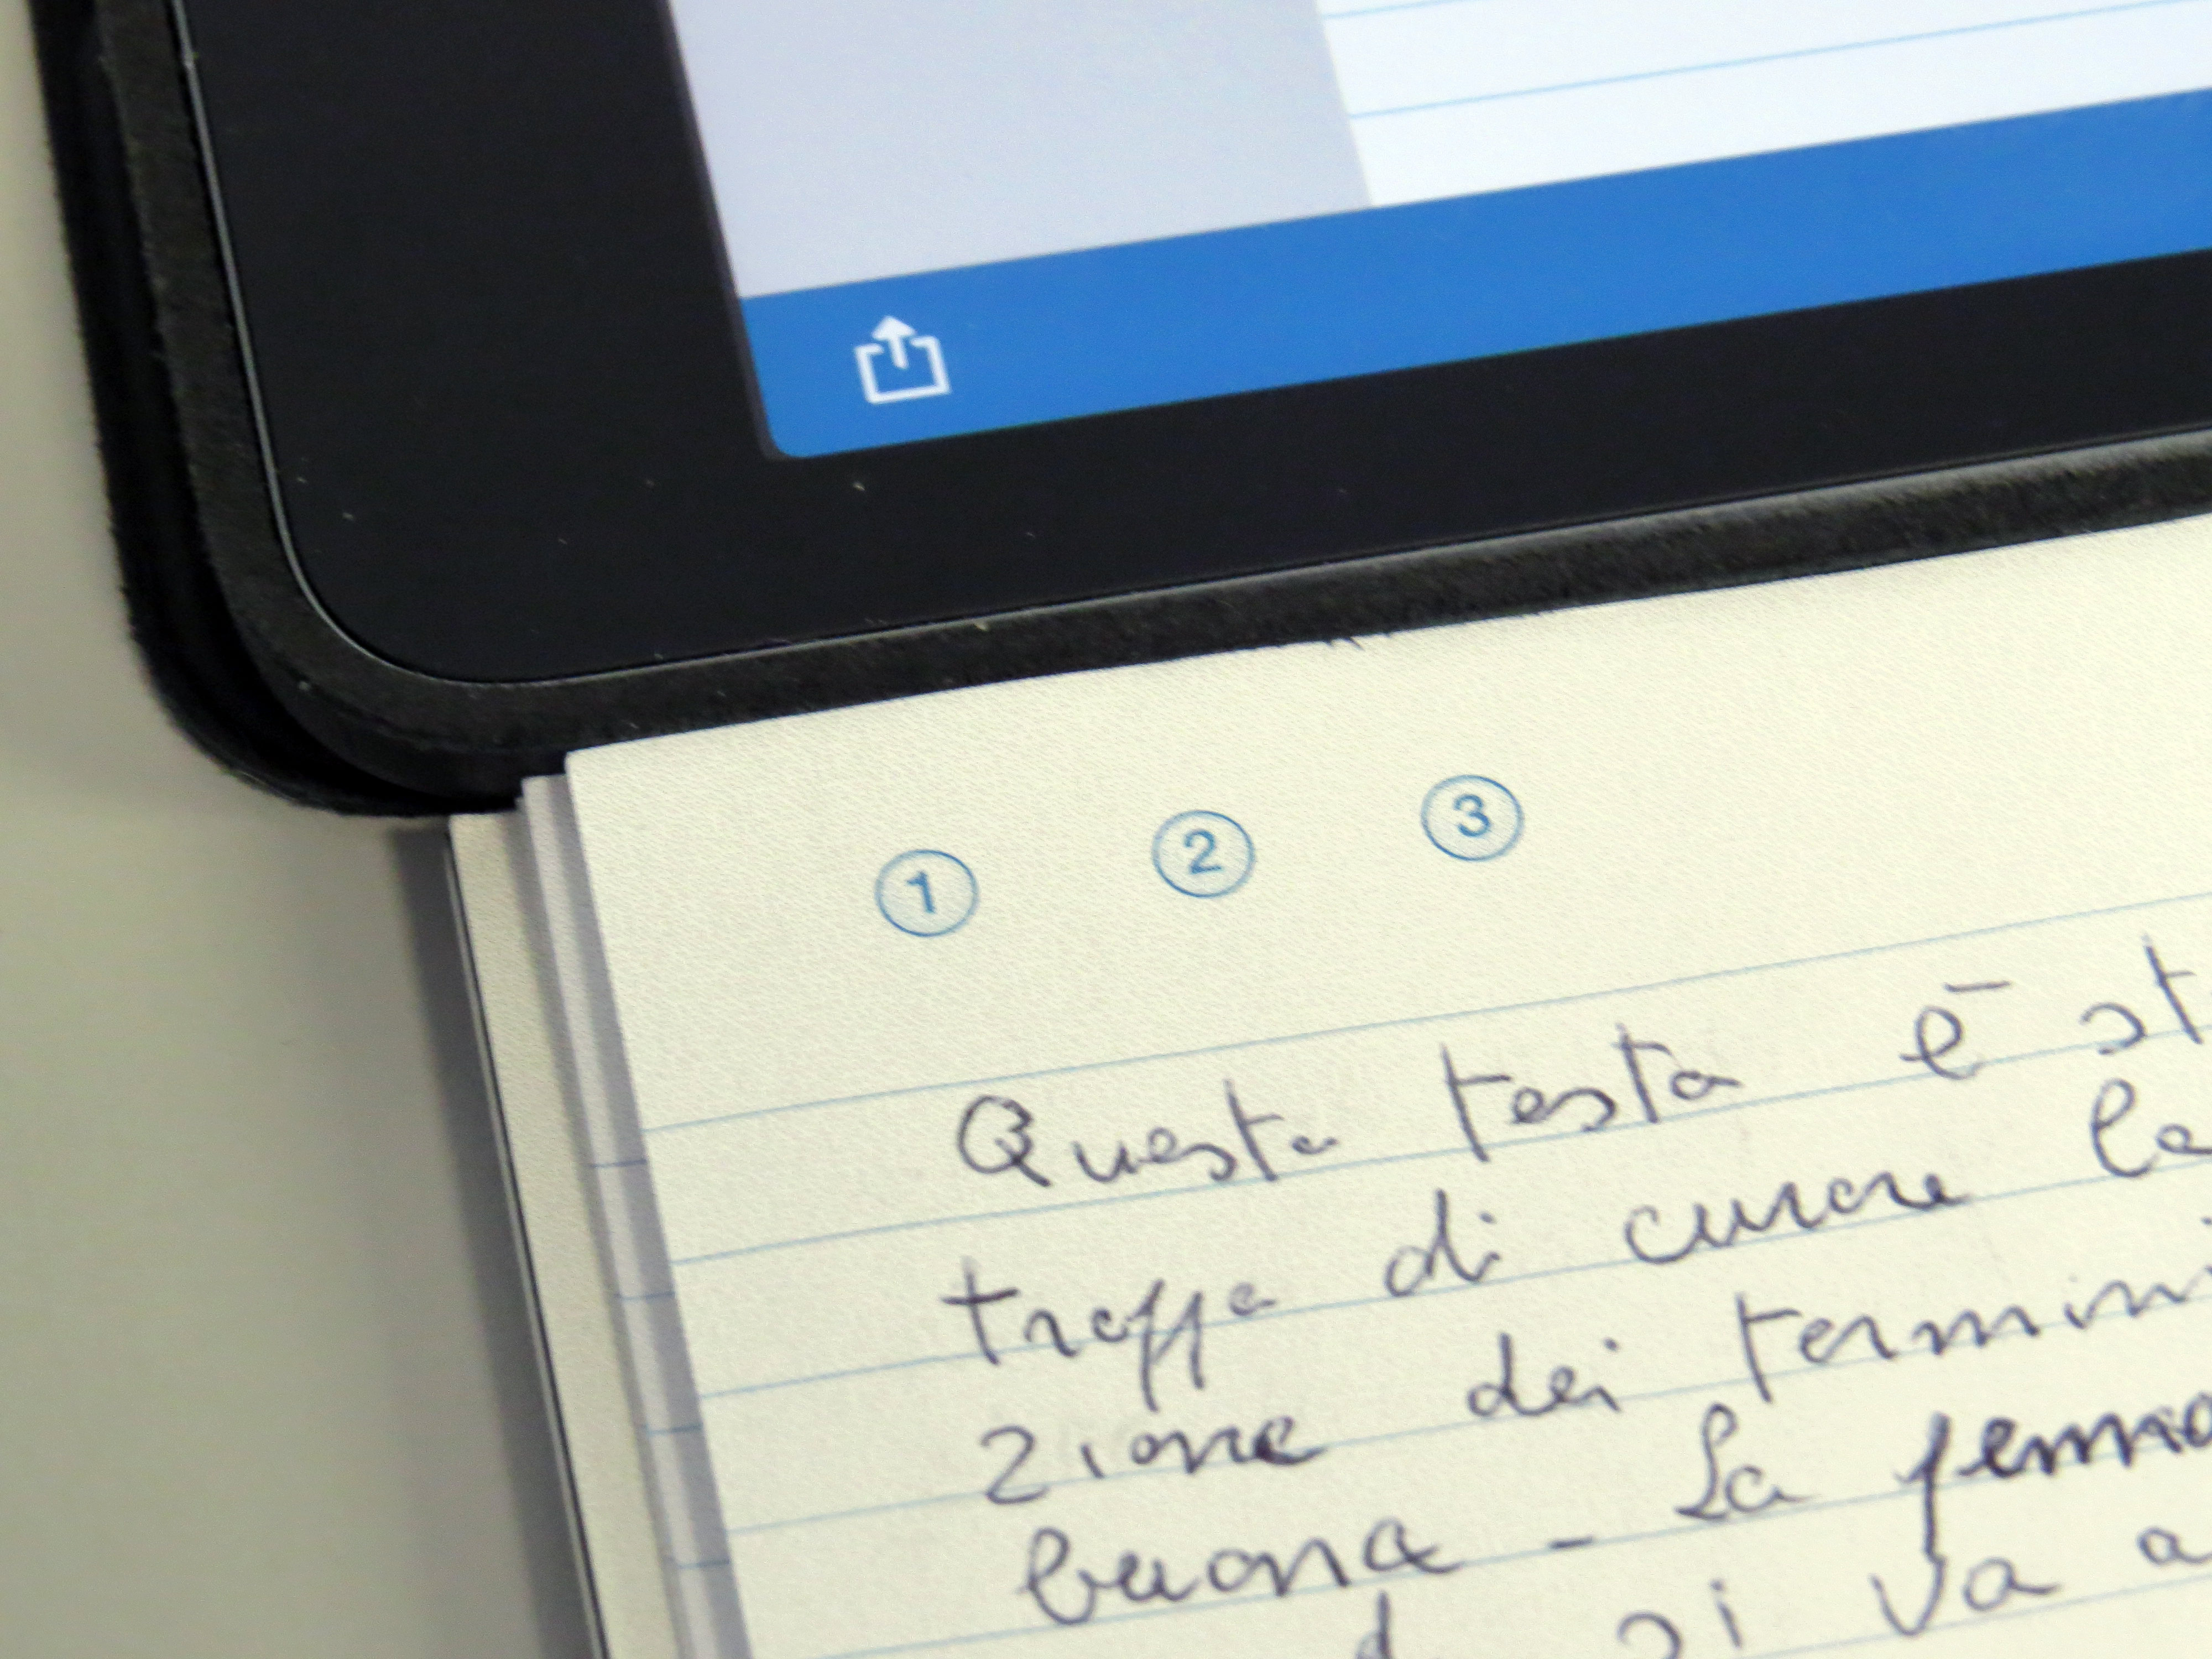 1 2 3
Questa testa è st
treffe di curare la
zione dei termini
buona - La ferma
d si va a